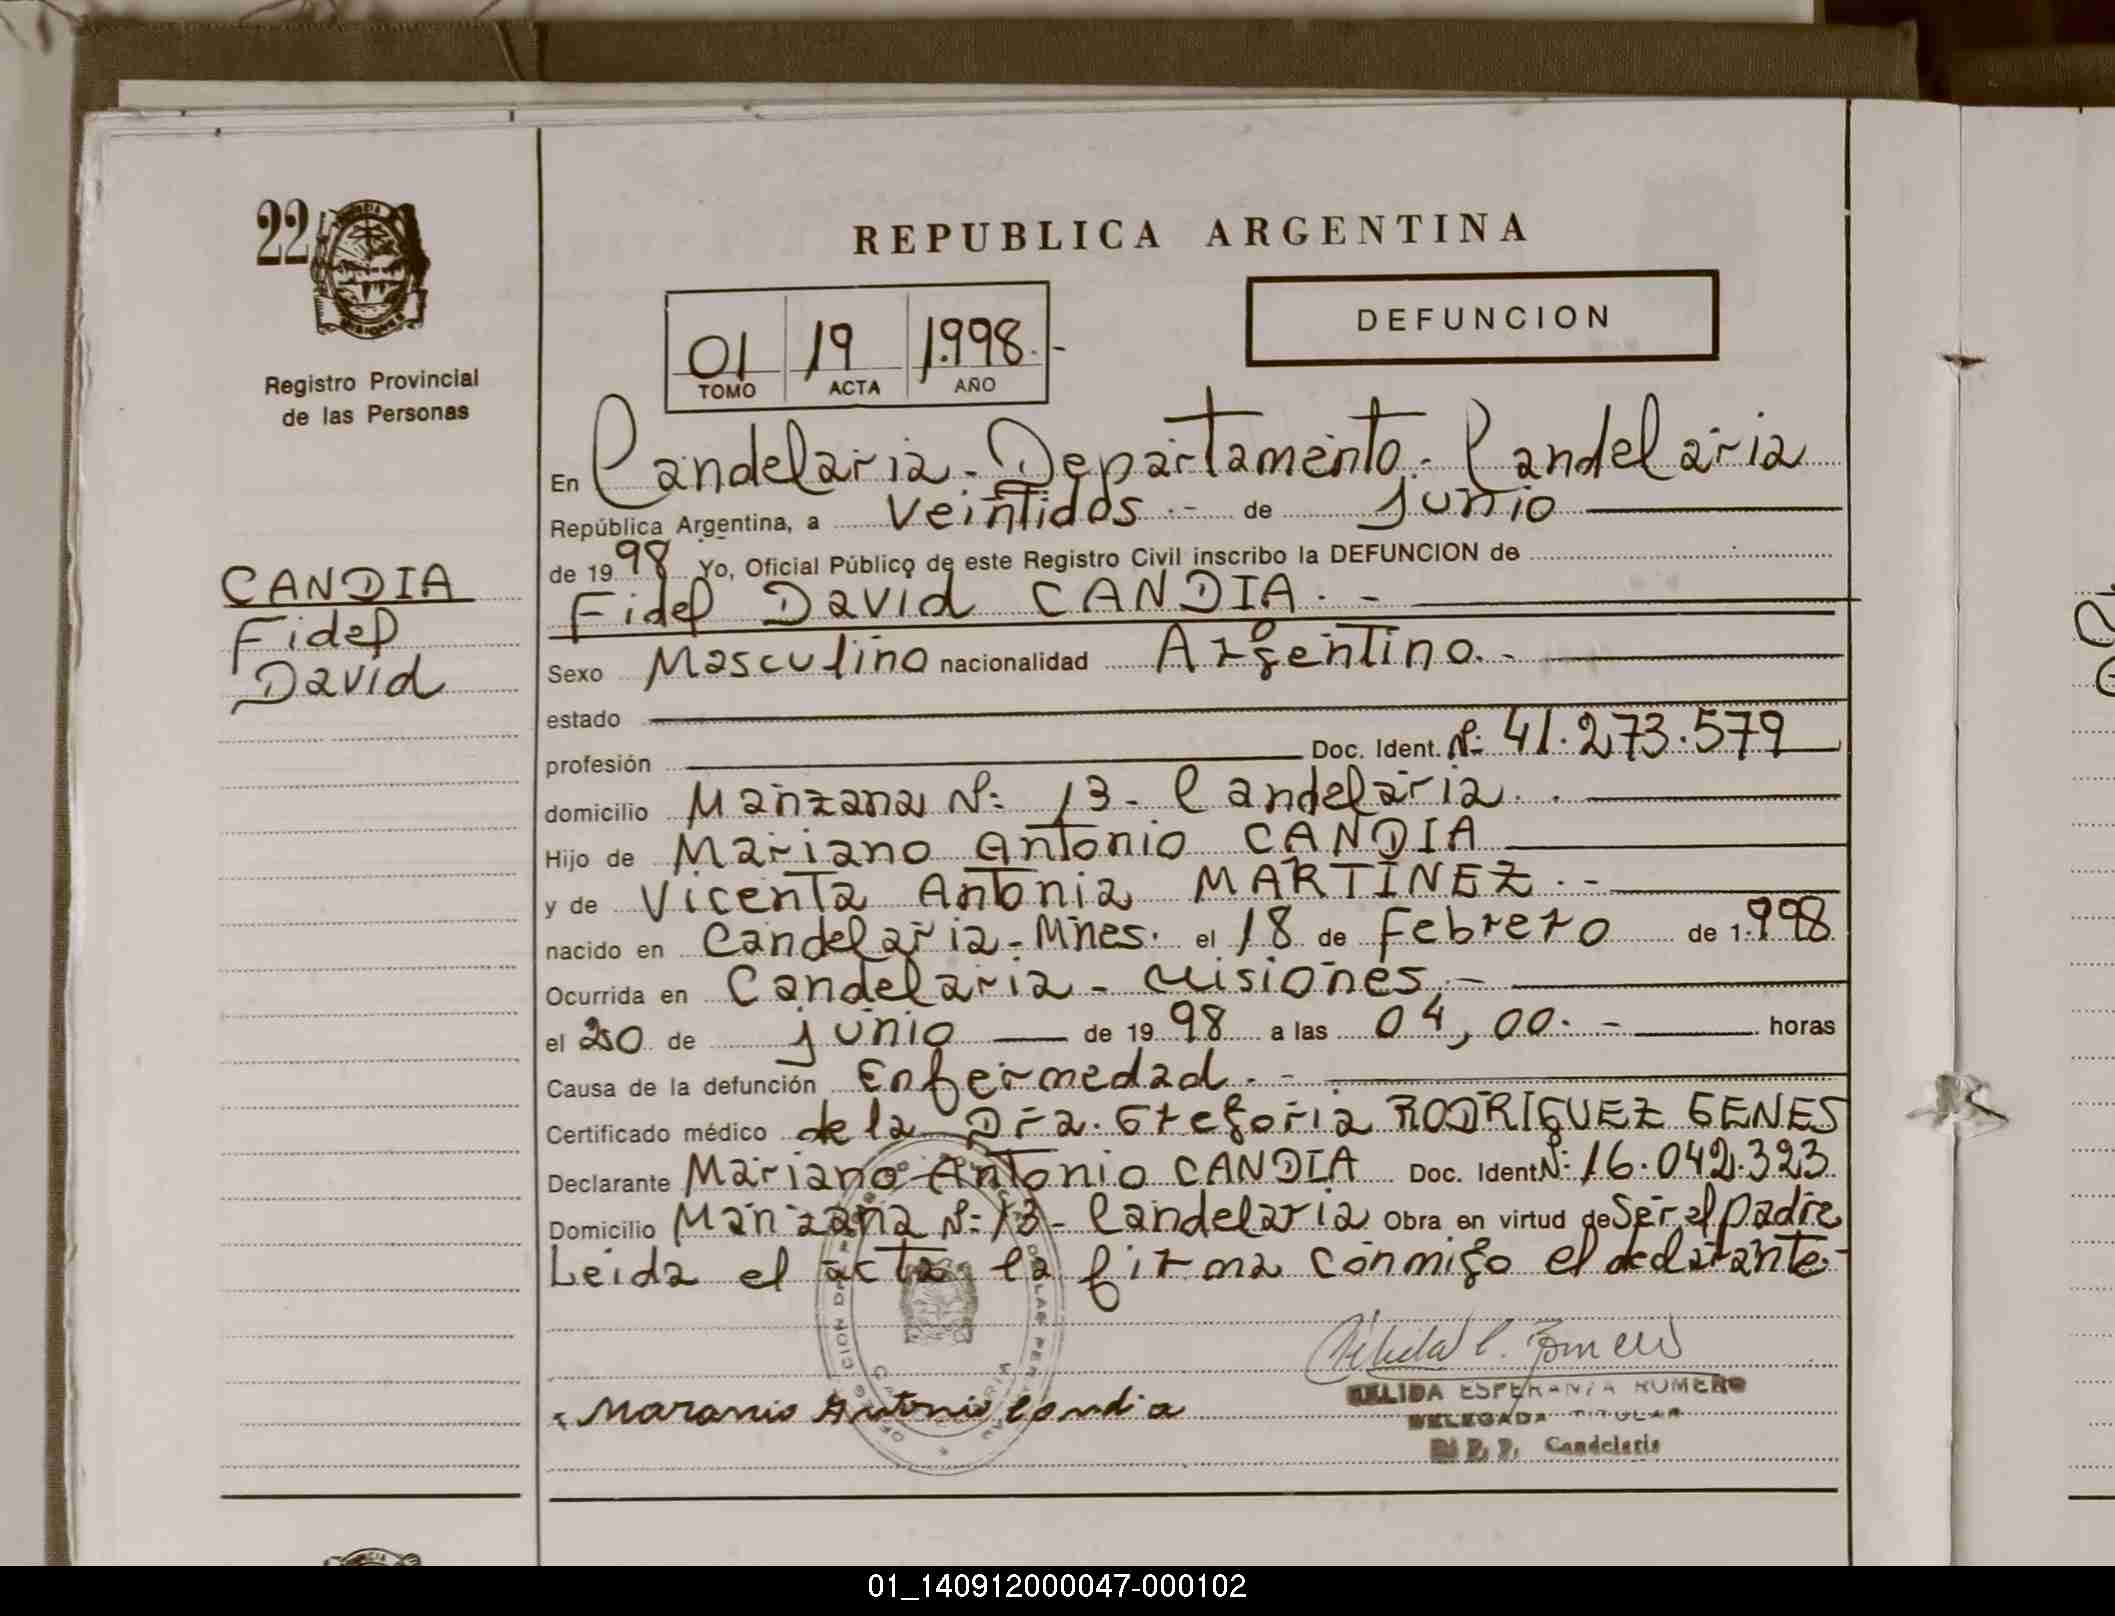 22
Registro Provincial
de las Personas
CANDIA
Fidel
David
REPUBLICA ARGENTINA
01 19 1.998.-
TOMO ACTA AÑO
DEFUNCION
En Candelaria - Departamento - Candelaria
República Argentina, a Veintidos .- de junio
de 1998 Yo, Oficial Público de este Registro Civil inscribo la DEFUNCION de
Fidel David CANDIA . -
Sexo Masculino nacionalidad Argentino . -
estado
profesión Doc. Ident. Nº: 41.273.579
domicilio Manzana Nº: 13 - Candelaria . .
Hijo de Mariano Antonio CANDIA
y de Vicenta Antonia MARTINEZ . -
nacido en Candelaria - Mnes. el 18 de Febrero de 1.998
Ocurrida en Candelaria - Misiones . -
el 20 de junio de 1998 a las 04,00. - horas
Causa de la defunción Enfermedad . -
Certificado médico de la Dra. Gregoria RODRIGUEZ GENES
Declarante Mariano Antonio CANDIA Doc. Ident Nº: 16.042.323
Domicilio Manzana Nº: 13 - Candelaria Obra en virtud de Ser el padre
Leida el acta la firma conmigo el declarante -
Maranio Antonio Candia
ESPERANZA ROMERO
DELEGADA TITULAR
Candelaria
01_140912000047-000102